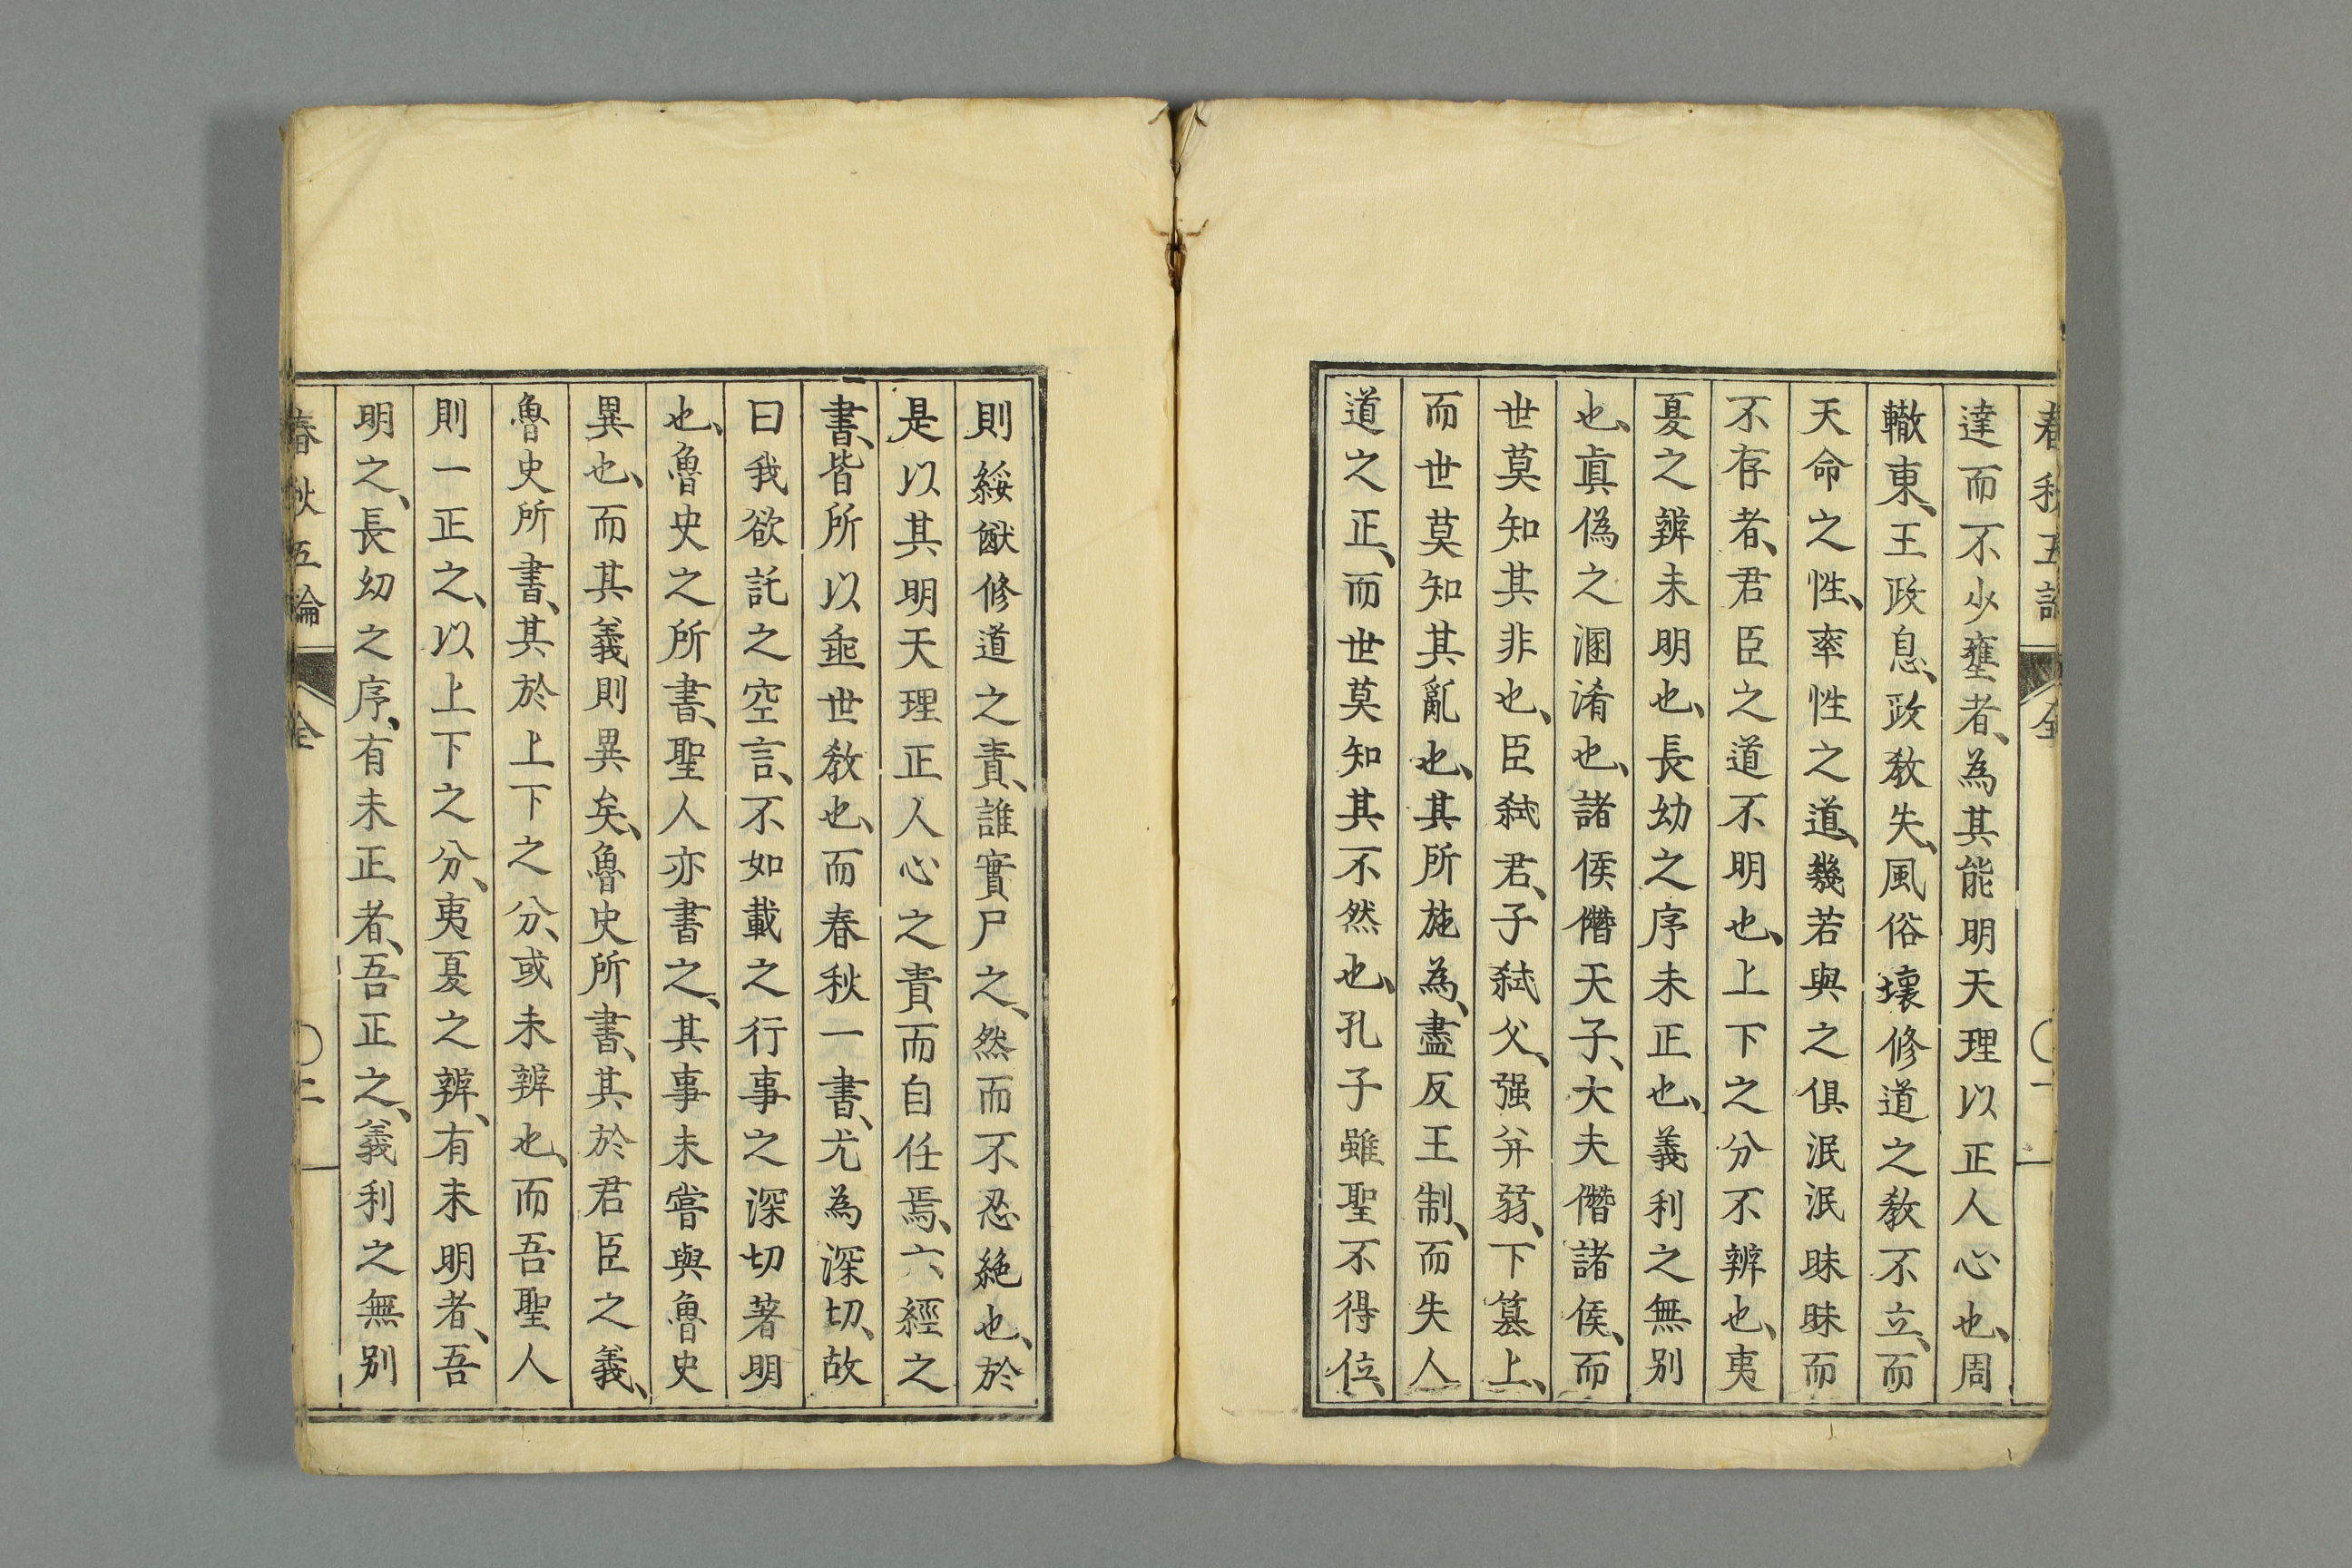 春秋五論 全 〇一
達而不少壅者、為其能明天理以正人心也、周
轍東、王政息、政教失、風俗壞修道之教不立、而
天命之性、率性之道、幾若與之俱泯泯昧昧而
不存者、君臣之道不明也、上下之分不辨也、夷
夏之辨未明也、長幼之序未正也、義利之無別
也、真偽之溷淆也、諸侯僭天子、大夫僭諸侯、而
世莫知其非也、臣弑君、子弑父、強并弱、下篡上、
而世莫知其亂也、其所施為、盡反王制、而失人
道之正、而世莫知其不然也、孔子雖聖不得位、
則綏猷修道之責、誰實尸之、然而不忍絶也、於
是以其明天理正人心之責而自任焉、六經之
書、皆所以垂世教也、而春秋一書、尤為深切、故
曰我欲託之空言、不如載之行事之深切著明
也、魯史之所書、聖人亦書之、其事未嘗與魯史
異也、而其義則異矣、魯史所書、其於君臣之義、
魯史所書、其於上下之分、或未辨也、而吾聖人
則一正之、以上下之分、夷夏之辨、有未明者、吾
明之、長幼之序、有未正者、吾正之、義利之無別
春秋五論 全 〇二